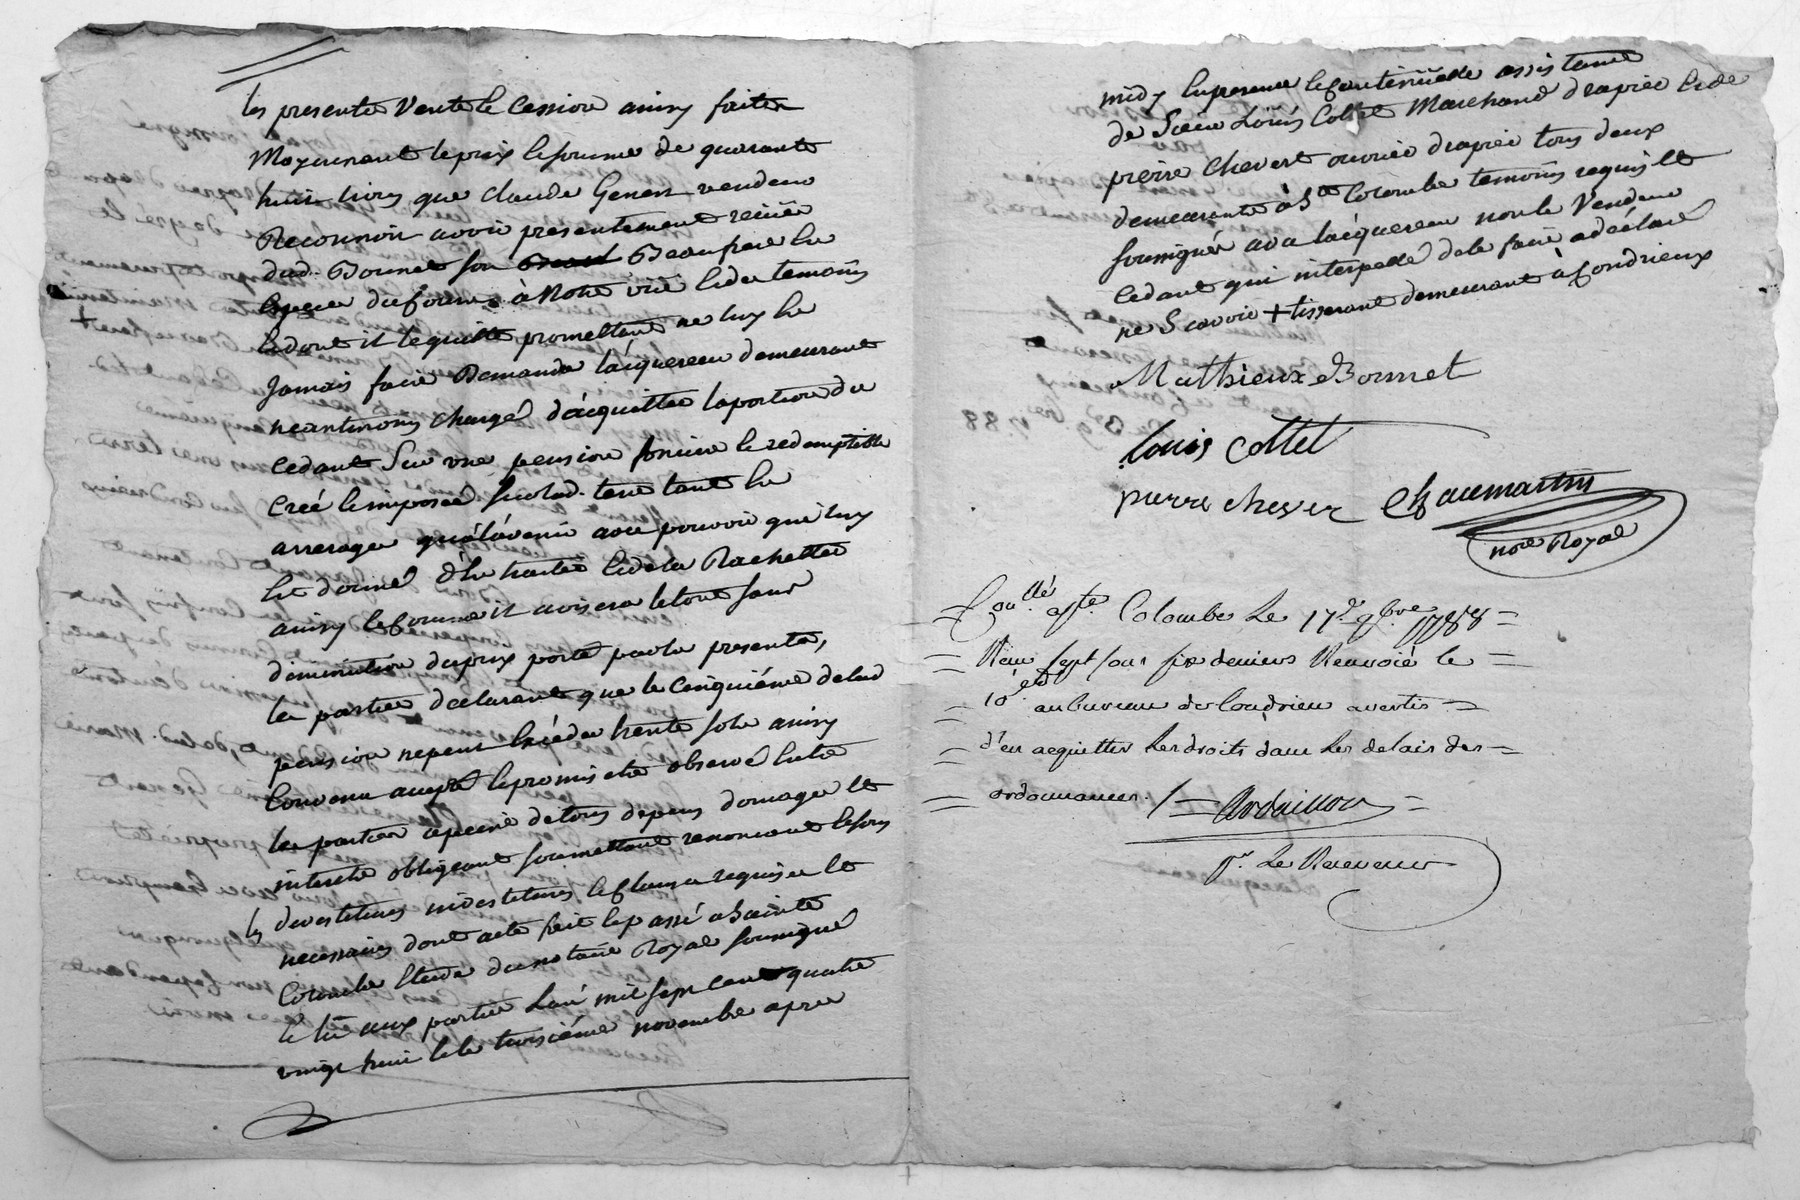 les presente vente & cession ainsy faites
Moyennant le prix & somme de quarante
huit livres que Claude Genest vendeur
Reconnoit avoir présentement reçüe
dud. Bonnet son Beaufrere en
Espece du cours à Notre vüe & des temoins
& dont il le quitte promettant ne luy en
Jamais faire Demande lacquereur demeurant
neantmoins chargé d'acquitter la portion du
Cedant Sur une pension fonciere & redemptible
créé & imposée sur lad. terre tant les
arrerages qu'à l'avenir avec pouvoir que luy
est donné d'en traiter & de la Rachetter
ainsy & comme il avisera le tout sans
diminution du prix porté par les presentes,
les parties declarant que le Cinquième de lad
pension ne peut Excéder trente sols ainsy
Convenu accepté & promis etre observé entre
les parties a peine de tous depens domages et
interets obligeant soumettant renonceant & sous
les devestitures investitures & clauses requises et
necessaires dont acte fait & passé a Sainte
Colombe Etude du notaire Royal soussigné
& lu aux parties Lan mil sept cent quatre
vingt huit & le troisième novembre apres
midy En presence & continüelle assistance
de Sieur Loüis Collet Marchand drapier & de
pierre chevert ouvrier drapier tous deux
demeurants à Ste Colombe temoins requis et
soussignés avec lacquereur non le Vendeur
Cedant qui interpellé de le faire a déclaré
ne Scavoir + tisserant demeurant à Condrieux
Mathieux Bonnet
Louis Collet
pierre chever Chaumartin
nore Royal
Conllé a Ste Colombe Le 17e 9bre 1788
Reçu sept sous six deniers Renvoié le
10e d au bureau de Condrieu avertis
d'en acquitter les droits dans les delais des
ordonnances ./. Ardaillon
Pr. Le Receveur